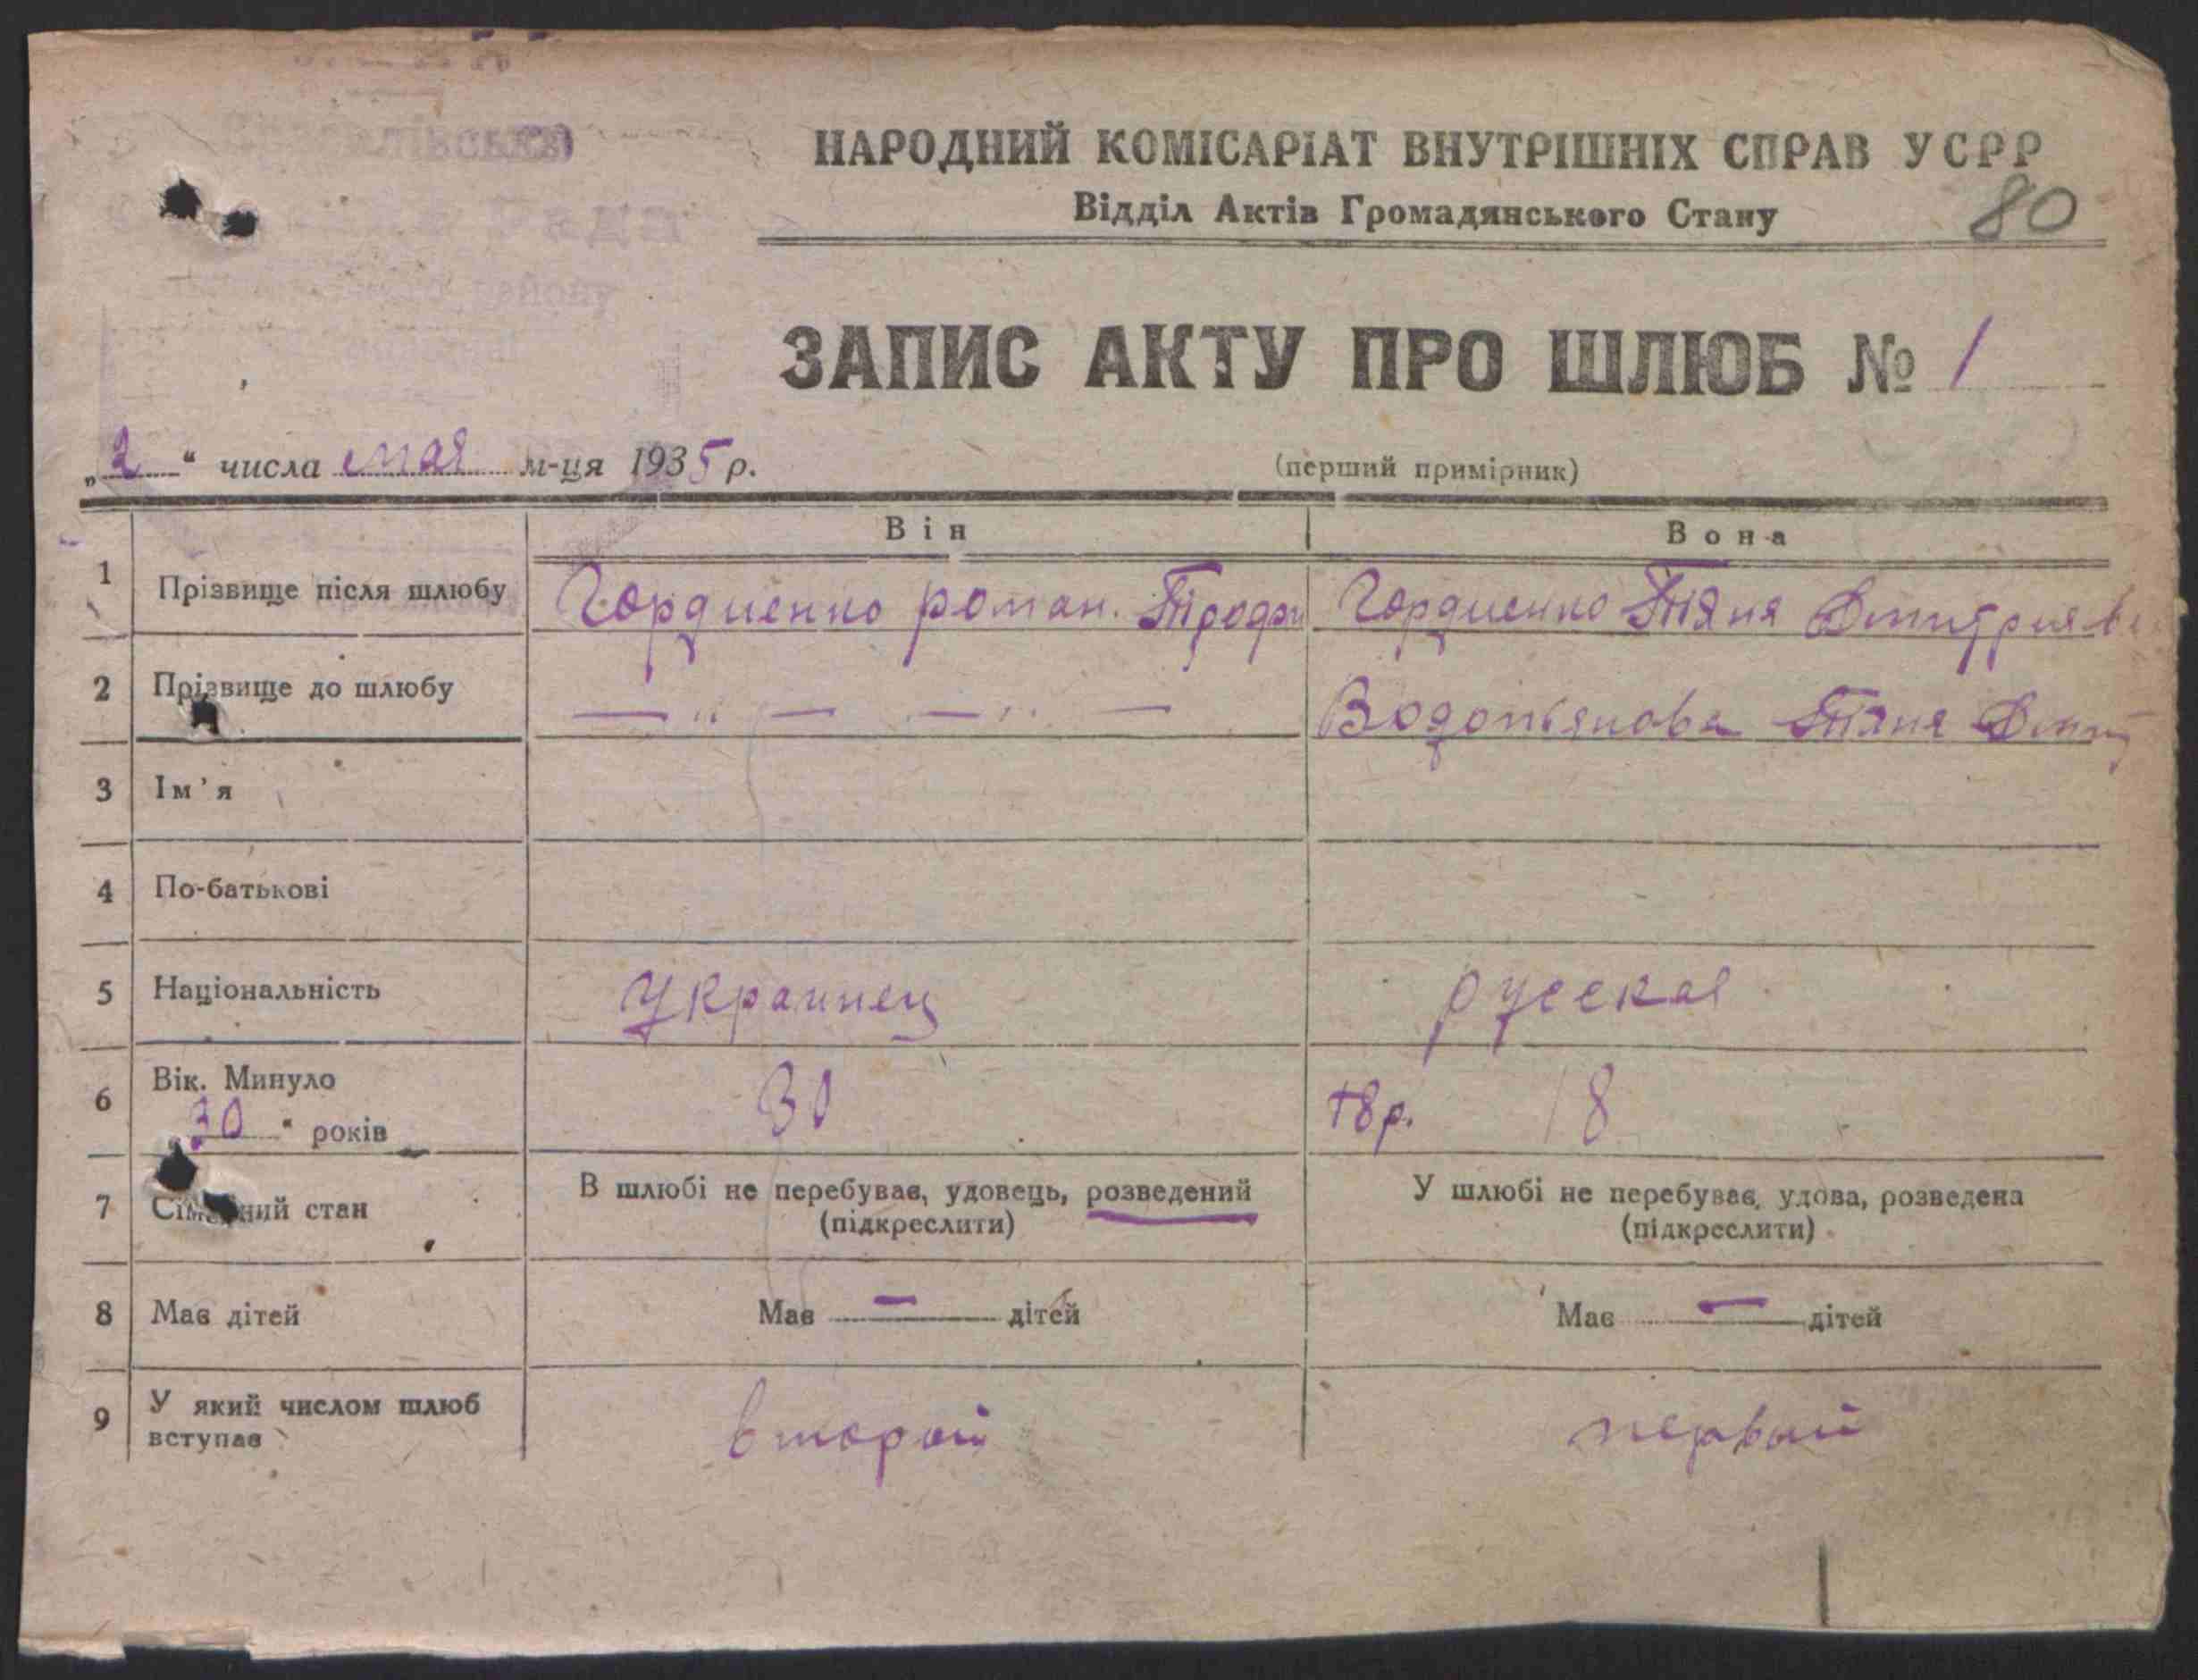 Рада
району
НАРОДНИЙ КОМІСАРІАТ ВНУТРІШНІХ СПРАВ УСРР
Відділ Актів Громадянського Стану
80
ЗАПИС АКТУ ПРО ШЛЮБ № 1
„2“ числа мая м-ця 1935 р.
(перший примірник)
Він Вона
1 Прізвище після шлюбу Гордиенко роман. Трофи Гордиенко Таня Дмитриев
2 Прізвище до шлюбу — „ — — „ — Водопьянова Таня Дмит
3 Ім'я
4 По-батькові
5 Національність Украинец русская
6 Вік. Минуло „30“ років 30 18р. 18
7 Сімейний стан В шлюбі не перебував, удовець, розведений (підкреслити) У шлюбі не перебував, удова, розведена (підкреслити)
8 Має дітей Має — дітей Має — дітей
9 У який числом шлюб вступає второй первый